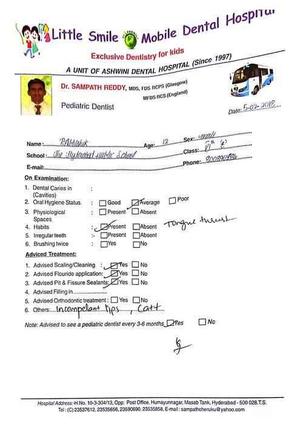 Little Smile Mobile Dental Hospital
Exclusive Dentistry for kids
A UNIT OF ASHWINI DENTAL HOSPITAL (Since 1997)
Dr. SAMPATH REDDY, MDS, FDS RCPS (Glasgow)
MFDS RCS (England)
Pediatric Dentist
Date:
Name: Age: 12 Sex:
School: The Hyderabad public School Class:
E-mail: Phone:
On Examination:
1. Dental Caries in :
(Cavities)
2. Oral Hygiene Status : Good Average Poor
3. Physiological : Present Absent
Spaces
4. Habits : Present Absent Tongue thrust
5. Irregular teeth :- Present Absent
6. Brushing twice : Yes No
Adviced Treatment:
1. Advised Scaling/Cleaning : Yes No
2. Advised Flouride application: Yes No
3. Advised Pit & Fissure Sealants: Yes No
4. Advised Filling in
5. Advised Orthodontic treatment : Yes No
6. Others: Incompetent lips,
Note: Advised to see a pediatric dentist every 3-6 months Yes No
Hospital Address:-H.No. 10-3-304/13, Opp: Post Office, Humayunnagar, Masab Tank, Hyderabad - 500 028.T.S.
Tel: (C):23537612, 23535656, 23590690, 23535858, E-mail : sampathcheruku@yahoo.com